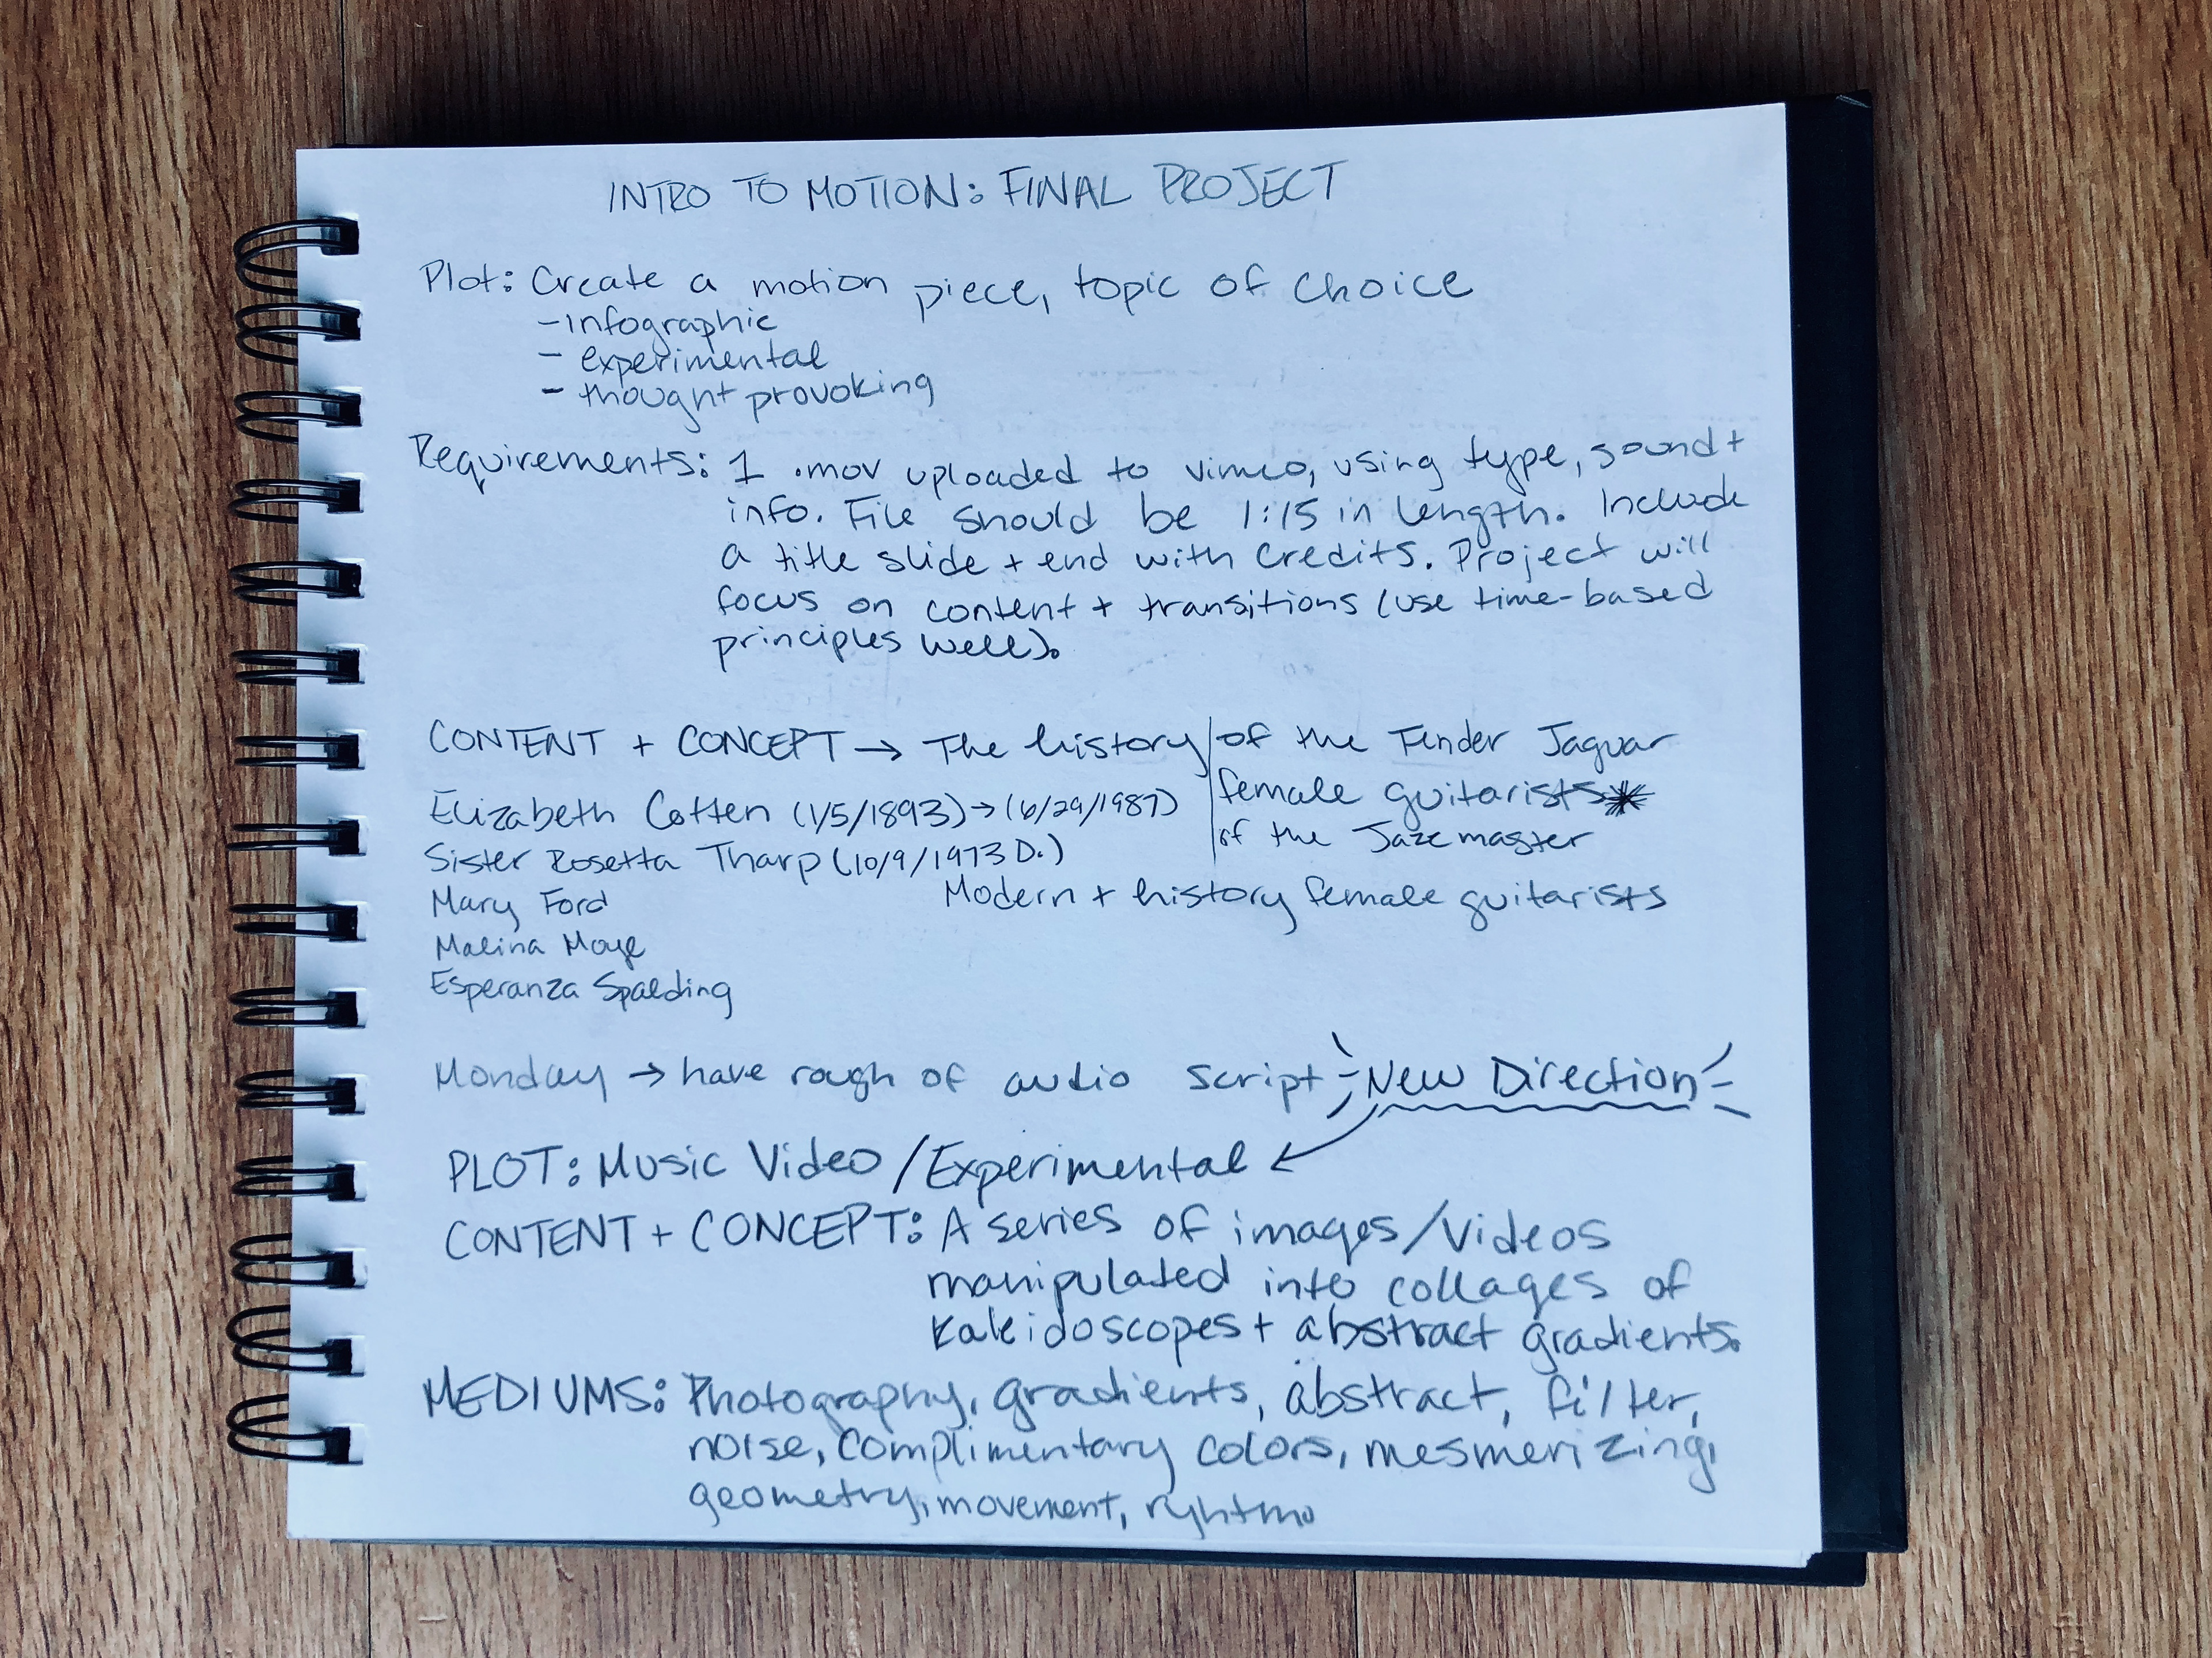 INTRO TO MOTION: FINAL PROJECT
Plot: Create a motion piece, topic of choice
- infographic
- experimental
- thought provoking
Requirements: 1 .mov uploaded to vimeo, using type, sound +
info. File should be 1:15 in length. Include
a title slide + end with credits. Project will
focus on content + transitions (use time-based
principles well).
CONTENT + CONCEPT → The history of the Fender Jaguar
female guitarists
of the Jazzmaster
Elizabeth Cotten (1/5/1893) → (6/29/1987)
Sister Rosetta Tharp (10/9/1973 D.)
Modern + history female guitarists
Mary Ford
Malina Moye
Esperanza Spalding
Monday → have rough of audio script
New Direction
PLOT: Music Video / Experimental
CONTENT + CONCEPT: A series of images/videos
manipulated into collages of
kaleidoscopes + abstract gradients.
MEDIUMS: Photography, gradients, abstract, filter,
noise, complimentary colors, mesmerizing,
geometry, movement, ryhtmn